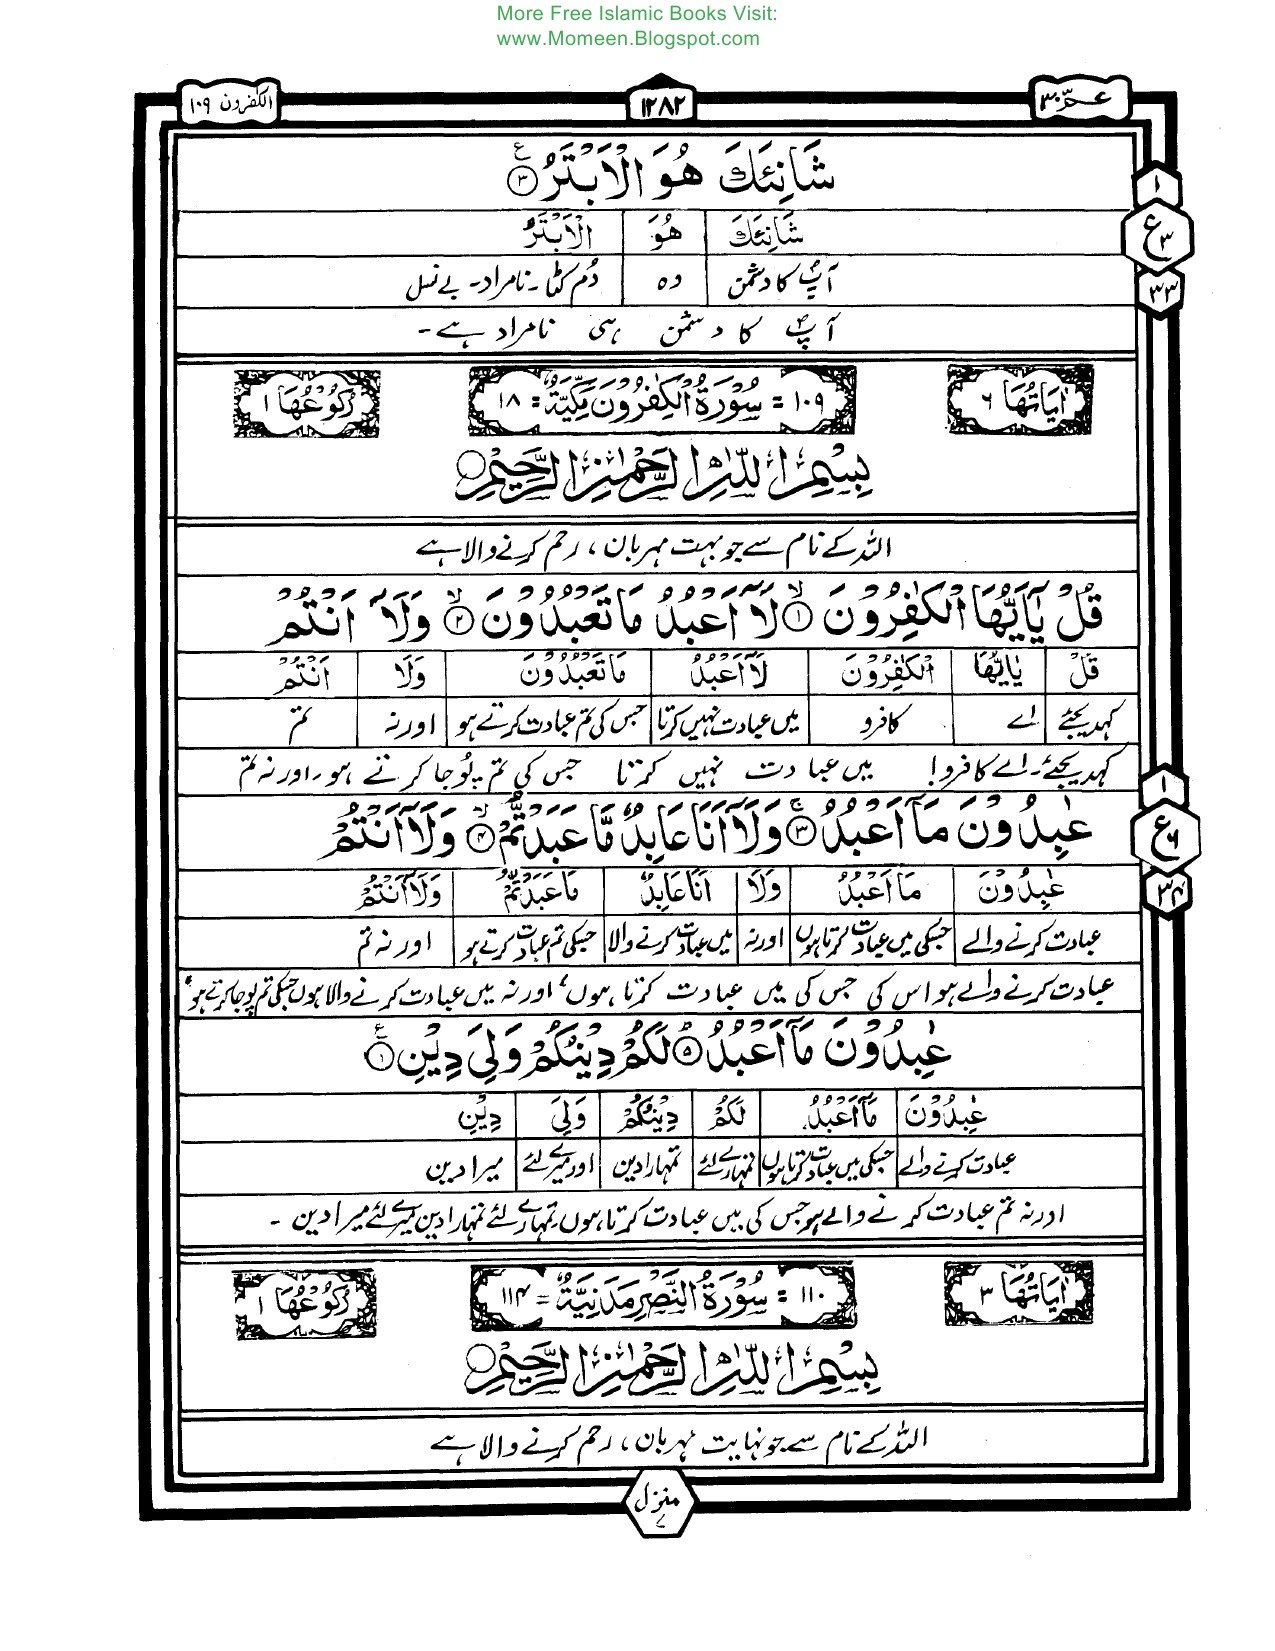 More Free Islamic Books Visit:
www.Momeen.Blogspot.com
عمّ ٣٠
١٢٨٢
الكٰفرون ١٠٩
شَانِئَكَ هُوَ الْاَبْتَرُ ٣ ع
شَانِئَكَ هُوَ الْاَبْتَرُ
آپؐ کا دشمن وہ دُم کٹا۔ نامراد۔ بے نسل
آپؐ کا دشمن ہی نامراد ہے۔
١
ع ٣
٣٣
اٰیَاتُهَا ٦
١٠٩ = سُوْرَةُ الْكٰفِرُوْنَ مَكِّیَّةٌ = ١٨
رُكُوْعُهَا ١
بِسْمِ اللّٰهِ الرَّحْمٰنِ الرَّحِیْمِ
اللہ کے نام سے جو بہت مہربان، رحم کرنے والا ہے
قُلْ یٰۤاَیُّهَا الْكٰفِرُوْنَ ١ لَاۤ اَعْبُدُ مَا تَعْبُدُوْنَ ٢ وَلَاۤ اَنْتُمْ
قُلْ یٰۤاَیُّهَا الْكٰفِرُوْنَ لَاۤ اَعْبُدُ مَا تَعْبُدُوْنَ وَلَا اَنْتُمْ
کہدیجئے اے کافرو میں عبادت نہیں کرتا جس کی تم عبادت کرتے ہو اور نہ تم
کہدیجئے۔ اے کافرو! میں عبادت نہیں کرتا جس کی تم پُوجا کرتے ہو، اور نہ تم
عٰبِدُوْنَ مَاۤ اَعْبُدُ ٣ وَلَاۤ اَنَا عَابِدٌ مَّا عَبَدْتُّمْ ٤ وَلَاۤ اَنْتُمْ
عٰبِدُوْنَ مَا اَعْبُدُ وَلَا اَنَا عَابِدٌ مَا عَبَدْتُّمْ وَلَاۤ اَنْتُمْ
عبادت کرنے والے جسکی میں عبادت کرتا ہوں اور نہ میں عبادت کرنے والا جسکی تم عبادت کرتے ہو اور نہ تم
عبادت کرنے والے ہو اس کی جس کی میں عبادت کرتا ہوں، اور نہ میں عبادت کرنے والا ہوں جسکی تم پوجا کرتے ہو،
١
ع ٦
٣٤
عٰبِدُوْنَ مَاۤ اَعْبُدُ ٥ لَكُمْ دِیْنُكُمْ وَلِیَ دِیْنِ ع
عٰبِدُوْنَ مَاۤ اَعْبُدُ لَكُمْ دِیْنُكُمْ وَلِیَ دِیْنِ
عبادت کرنے والے جسکی میں عبادت کرتا ہوں تمہارے لئے تمہارا دین اور میرے لئے میرا دین
اور نہ تم عبادت کرنے والے ہو جس کی میں عبادت کرتا ہوں، تمہارے لئے تمہارا دین میرے لئے میرا دین ۔
اٰیَاتُهَا ٣
١١٠ = سُوْرَةُ النَّصْرِ مَدَنِیَّةٌ = ١١٤
رُكُوْعُهَا ١
بِسْمِ اللّٰهِ الرَّحْمٰنِ الرَّحِیْمِ
اللہ کے نام سے جو نہایت مہربان، رحم کرنے والا ہے
منزل ٧